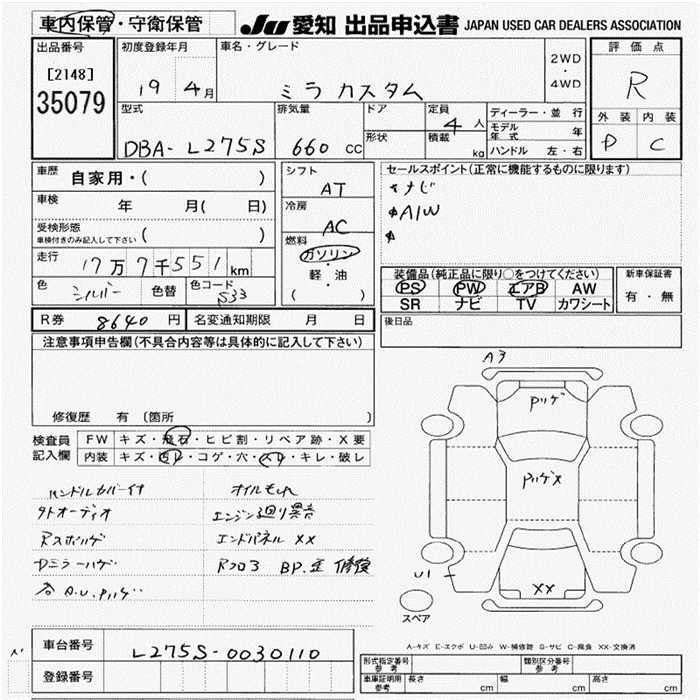 車内保管・守衛保管
JU 愛知 出品申込書 JAPAN USED CAR DEALERS ASSOCIATION
出品番号
[2148]
35079
初度登録年月
19 4月
車名・グレード
ミラ カスタム
2WD
・
4WD
評価点
R
外装 内装
D C
型式
DBA- L275S
排気量
660 CC
ドア
形状
定員
4 人
積載
kg
ディーラー・並行
モデル年式 年
ハンドル 左・右
車歴
自家用・( )
車検
年 月( 日)
受検形態
車検付きのみ記入して下さい ( )
走行
17万7千551km
色
シルバー
色替
色コード
S33
シフト
AT
冷房
AC
燃料
ガソリン
・
軽・油
( )
セールスポイント(正常に機能するものに限ります)
ナビ
A/W
装備品(純正品に限り○をつけてください)
PS PW エアB AW
SR ナビ TV カワシート
新車保証書
有・無
R券 8640 円 名変通知期限 月 日
後日品
注意事項申告欄(不具合内容等は具体的に記入して下さい)
修復歴 有 (箇所 )
検査員
記入欄
FW キズ・飛石・ヒビ割・リペア跡・X要
内装 キズ・汚レ・コゲ・穴・スレ・キレ・破レ
ハンドルカバー付
外オーディオ
Rスポハゲ
Dミラーハゲ
各 A.U.Pハゲ
オイルもれ
エンジン廻り異音
エンドパネル XX
Rフロア BP.歪 修復
A3
Pハゲ
PハゲX
XX
U1
スペア
A-キズ E-エクボ U-凹み W-補修跡 S-サビ C-腐食 XX-交換済
車台番号 L275S-0030110
登録番号
形式指定番号
参考
類別区分番号
参考
車庫証明用
参考
長さ cm 幅 cm 高さ cm